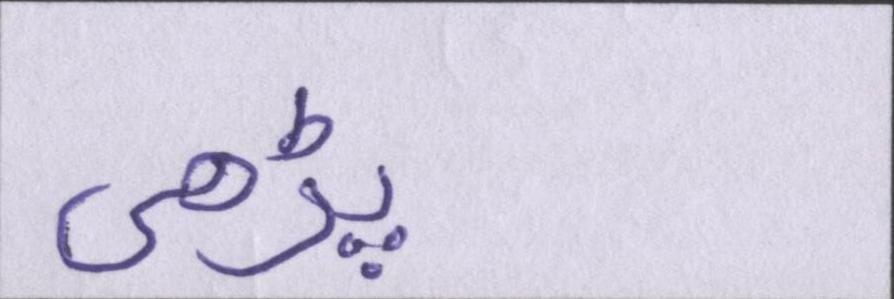 پڑھی